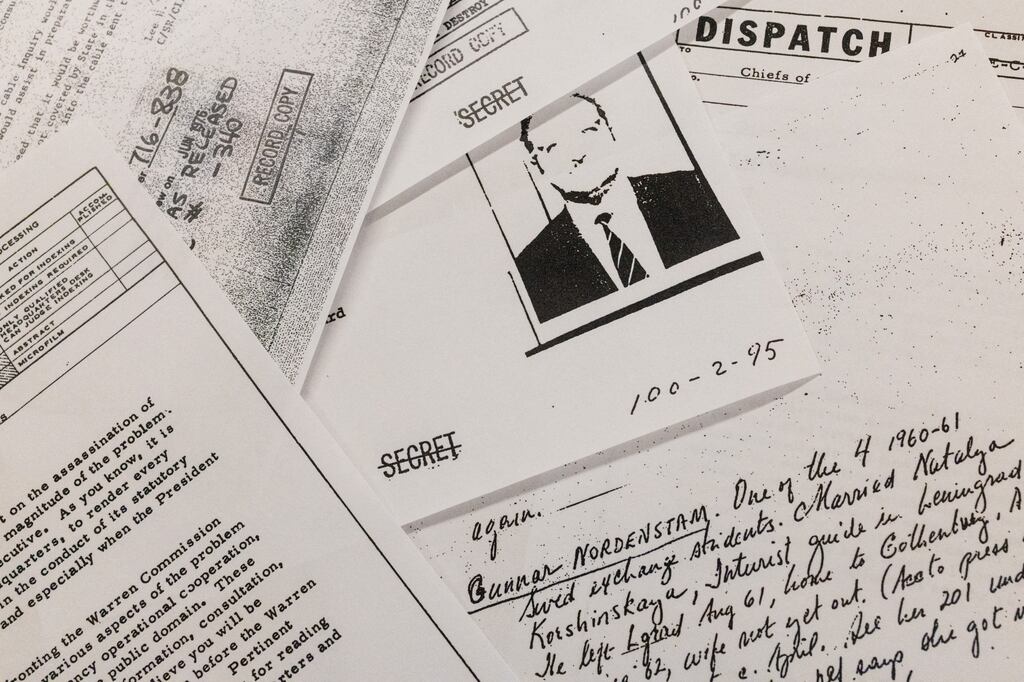 cable inquiry
would assist in prepara
ed that it would be worth
ot covered by State in th
into the cable sent t
see i.
C/SR/CI
716-838
JUN 1976
AS RELEASED
- 340
AS #
RECORD COPY
DESTROY
RECORD COPY
SECRET
100
DISPATCH
CLASSI
TO
Chiefs of
24
OCESSING
ACTION
ACCOM-
PLISHED
KED FOR INDEXING
INDEXING REQUIRED
ONLY QUALIFIED
HEADQUARTERS DESK
CAN JUDGE INDEXING
ABSTRACT
MICROFILM
rd
100-2-95
SECRET
t on the assassination of
magnitude of the problem.
ecutive. As you know, it is
quarters, to render every
in the conduct of its statutory
and especially when the President
ronting the Warren Commission
various aspects of the problem
ncy operational cooperation,
public domain. These
formation, consultation,
lieve you will be
before the Warren
Pertinent
for reading
rters and
again.
Gunnar NORDENSTAM. One of the 4 1960-61
Swed exchange students. Married Natalya
Korshinskaya, Intourist guide in Leningrad
He left Lgrad Aug 61, home to Gothenburg,
62, wife not yet out. (Acc to press
c. April. See her 201 und
says she got